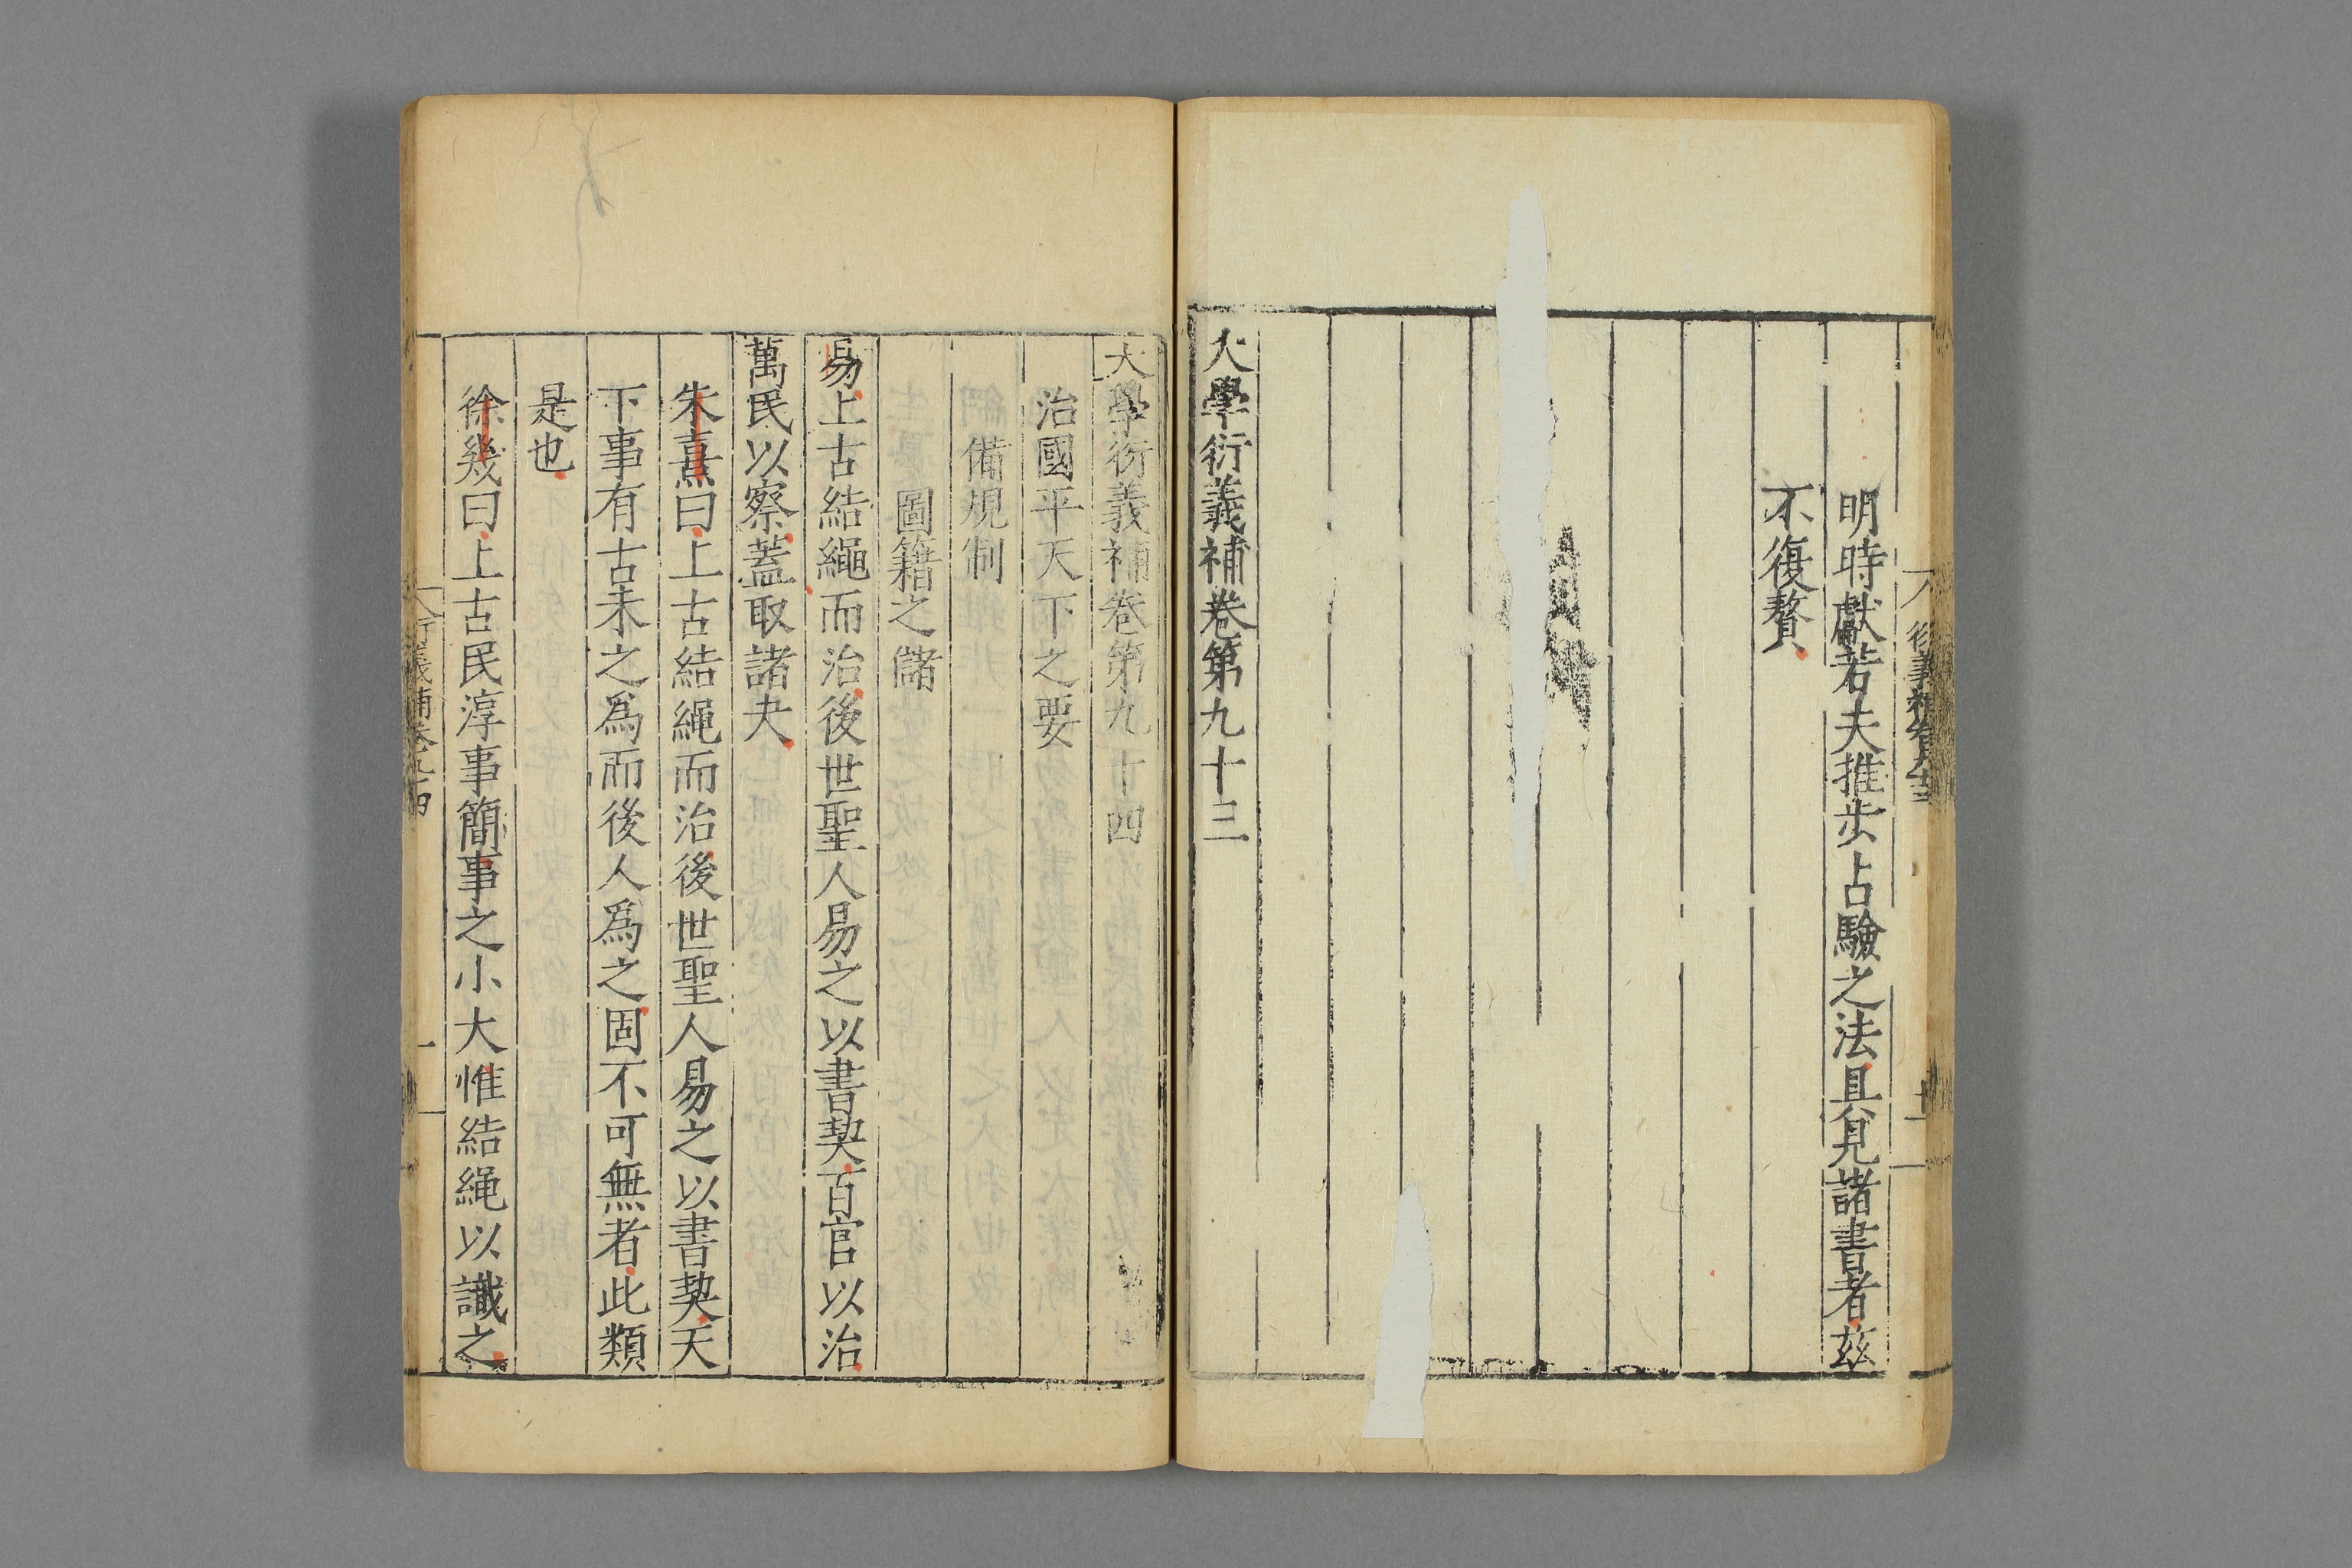 明時獻若夫推步占驗之法具見諸書者茲
不復贅
大學衍義補卷第九十三
大學衍義補卷第九十四
治國平天下之要
備規制
圖籍之儲
易上古結繩而治後世聖人易之以書契百官以治
萬民以察蓋取諸夬
朱熹曰上古結繩而治後世聖人易之以書契天
下事有古未之爲而後人爲之固不可無者此類
是也
徐幾曰上古民淳事簡事之小大惟結繩以識之
衍義補卷九十四
一